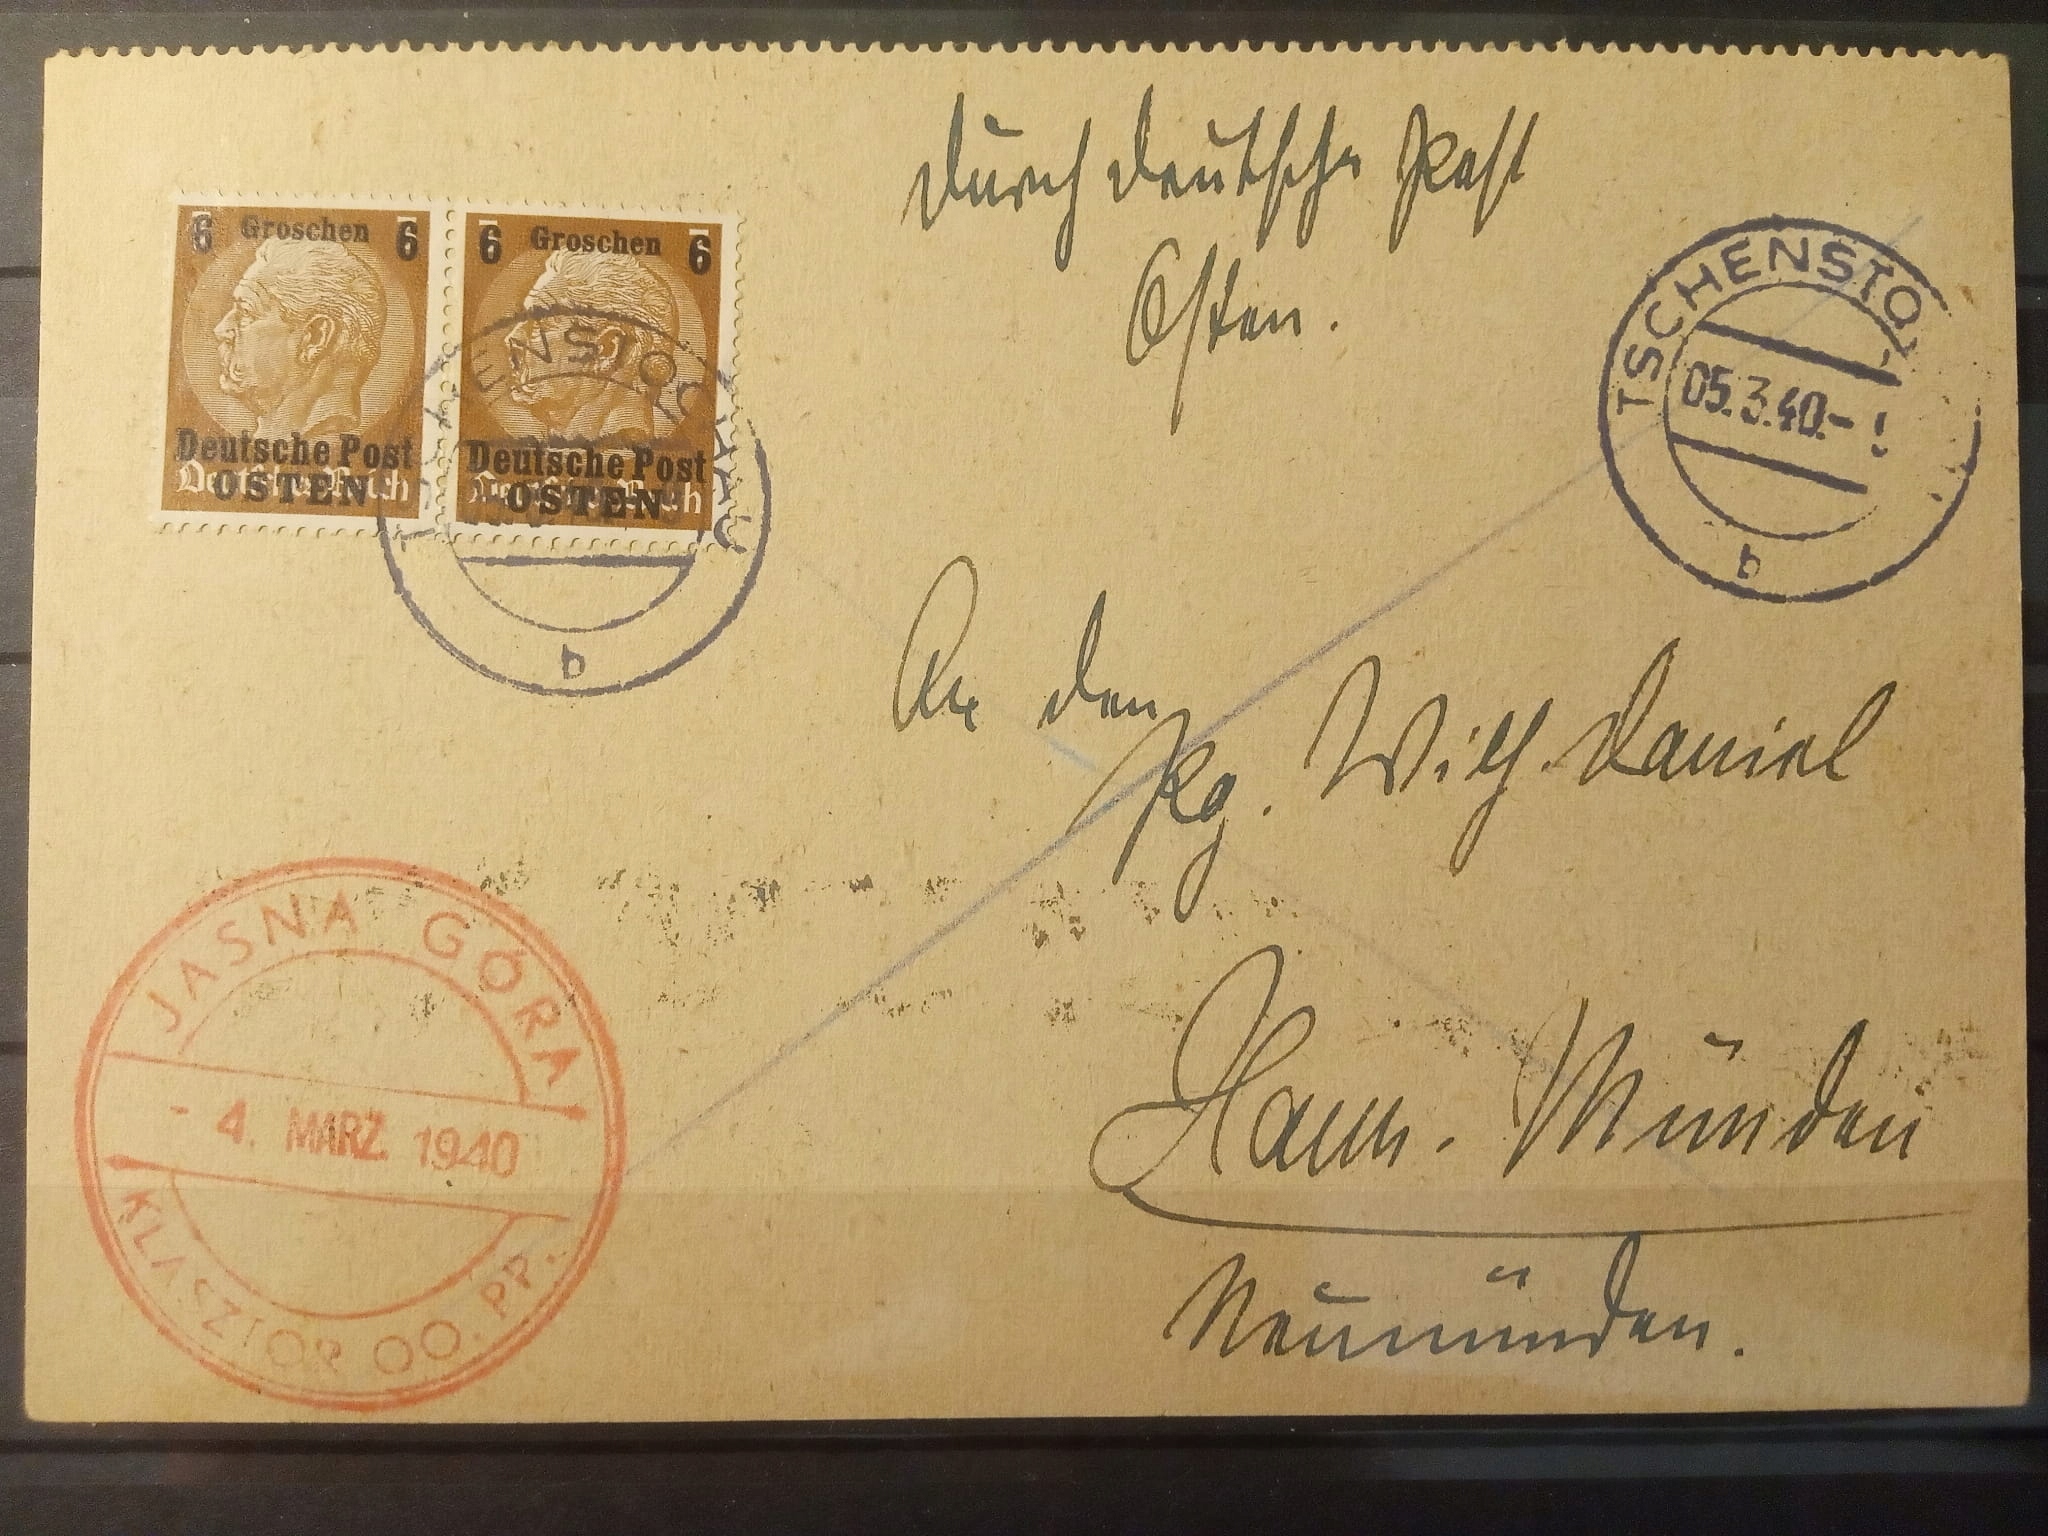 durch deutsche Post
Osten.
6 Groschen 6
Deutsche Post
OSTEN
Deutsches Reich
6 Groschen 6
Deutsche Post
OSTEN
Deutsches Reich
TSCHENSTOCHAU
b
TSCHENSTO
05.3.40.-
b
An den
Pg. Wilh. Daniel
Hann. Münden
Neumünden.
JASNA GÓRA
- 4. MÄRZ. 1940
KLASZTOR OO. PP.